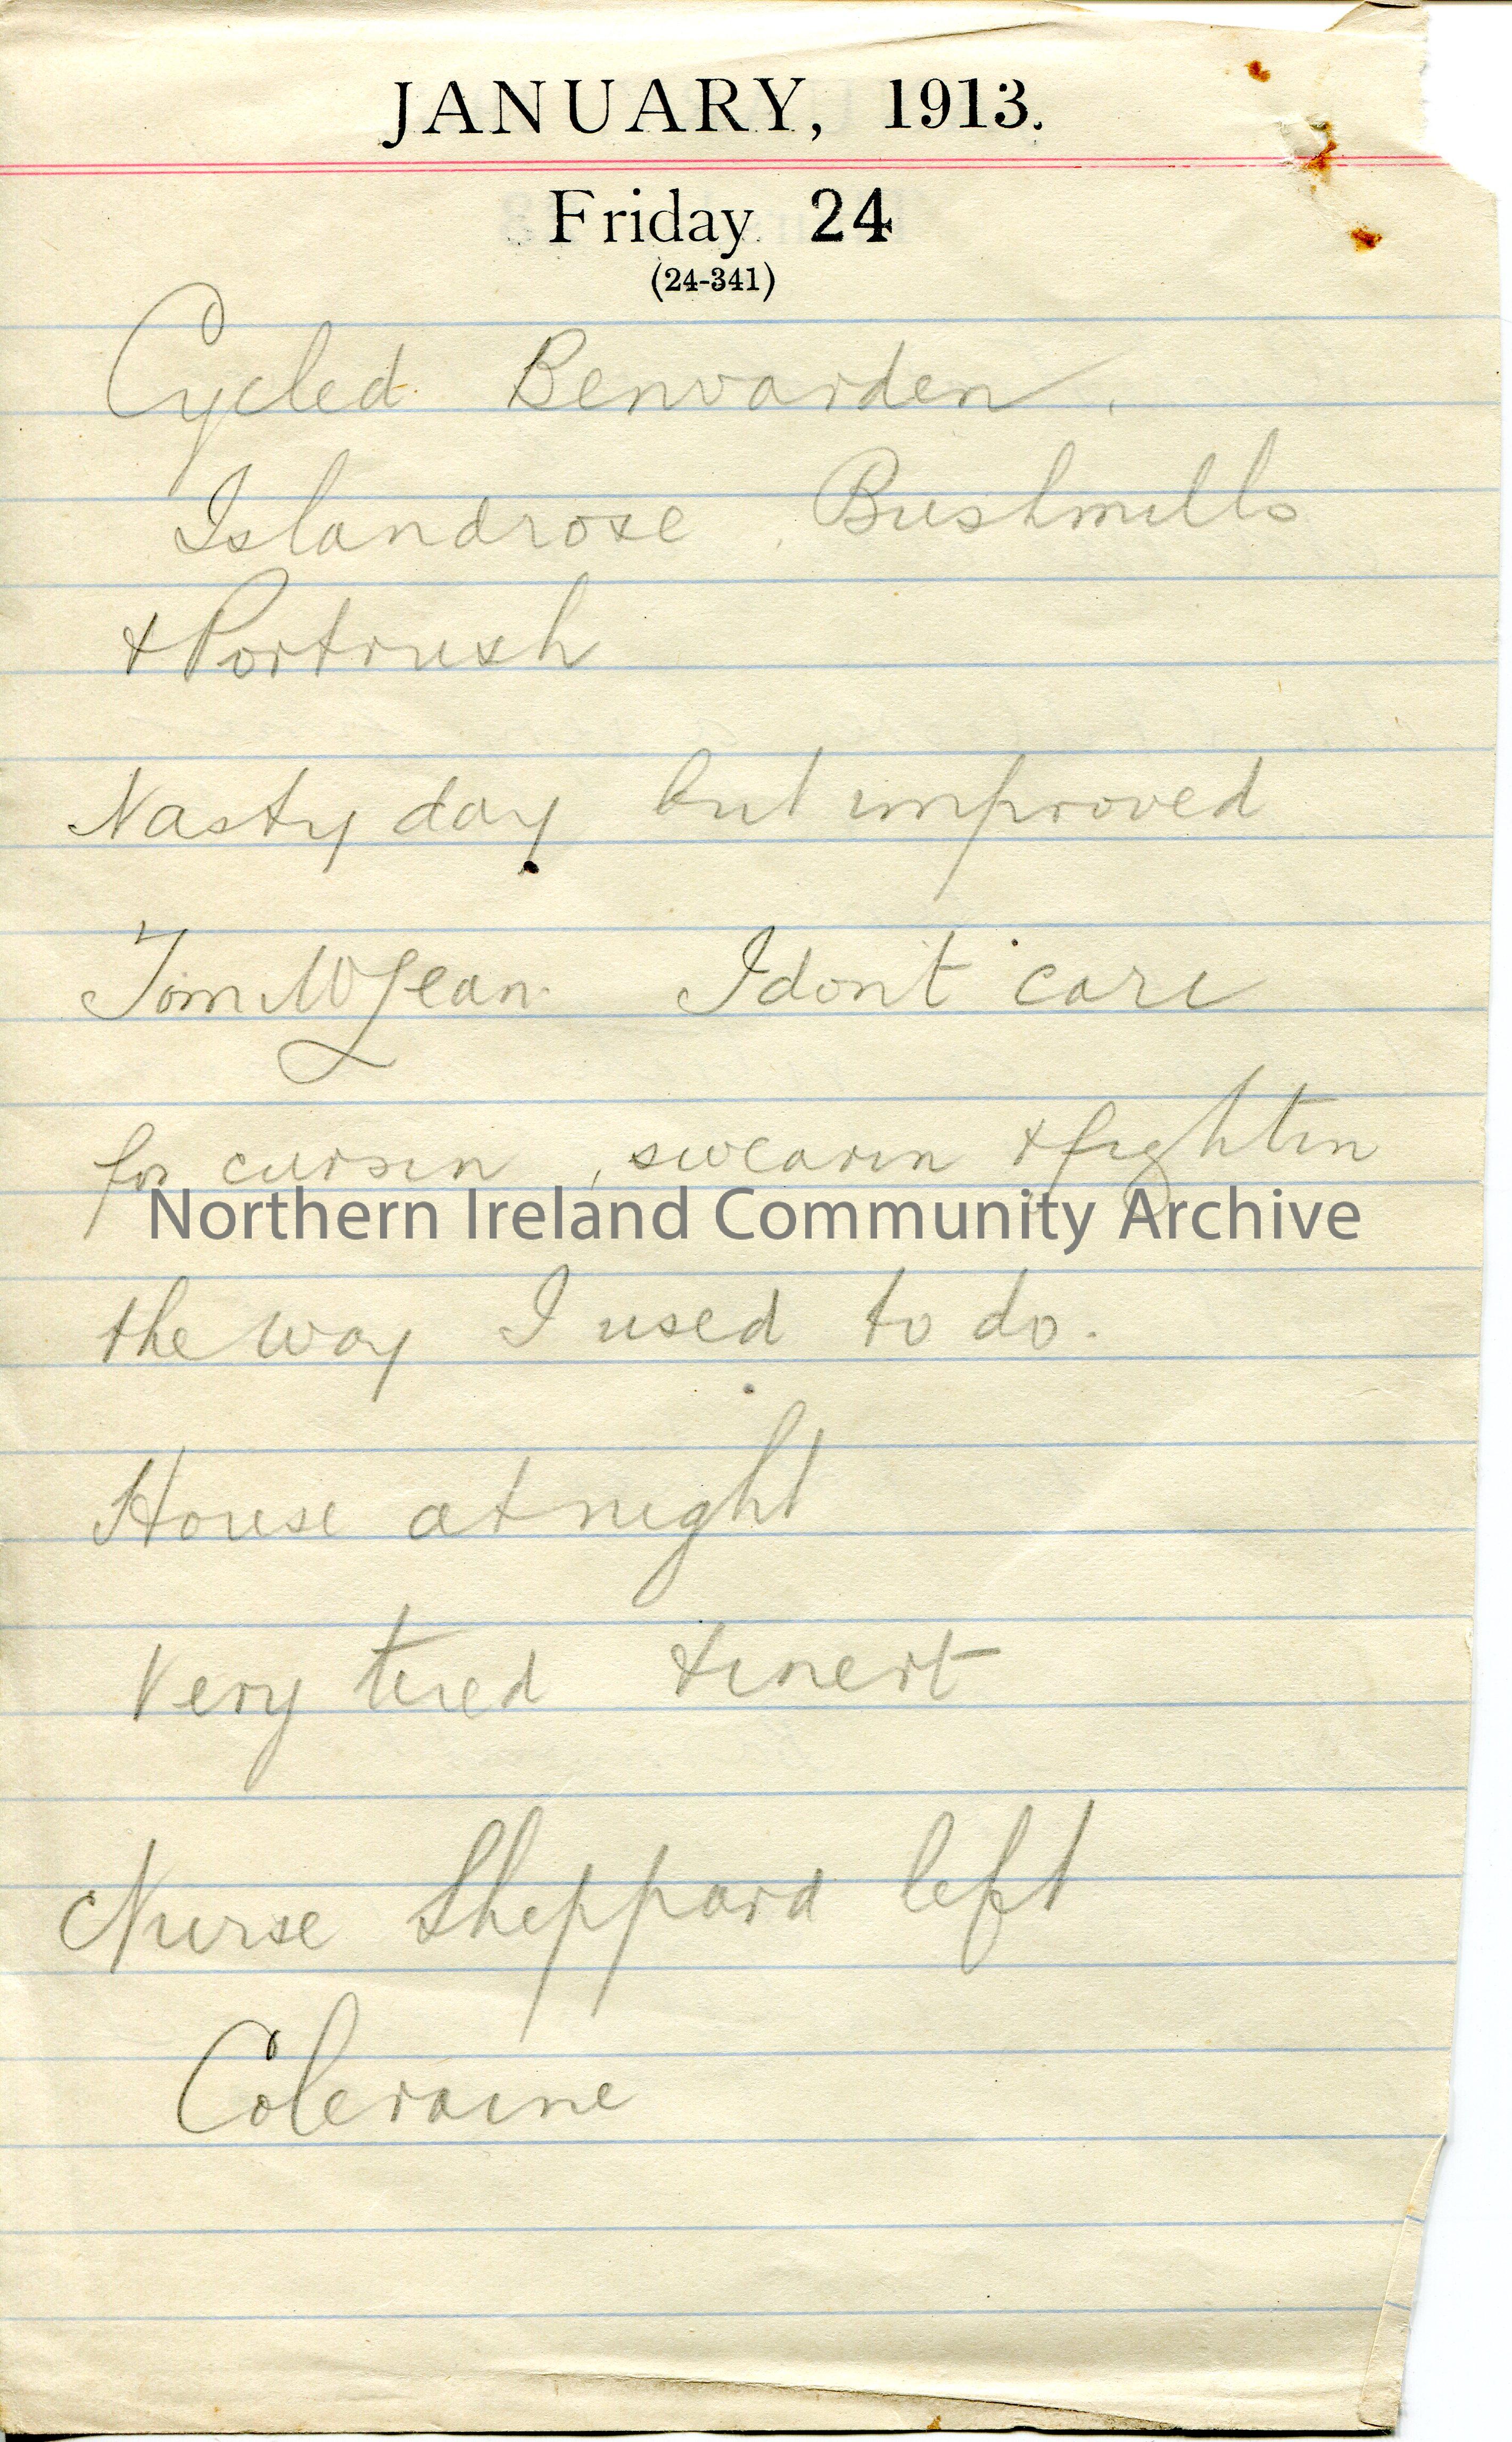 JANUARY, 1913.
Friday 24
(24-341)
Cycled Benvarden,
Islandrose, Bushmills
& Portrush
Nasty day but improved
Tom McLean I don't care
for cursin, swearin & fightin
Northern Ireland Community Archive
the way I used to do.
House at night
Very tired & inert
Nurse Sheppard left
Coleraine